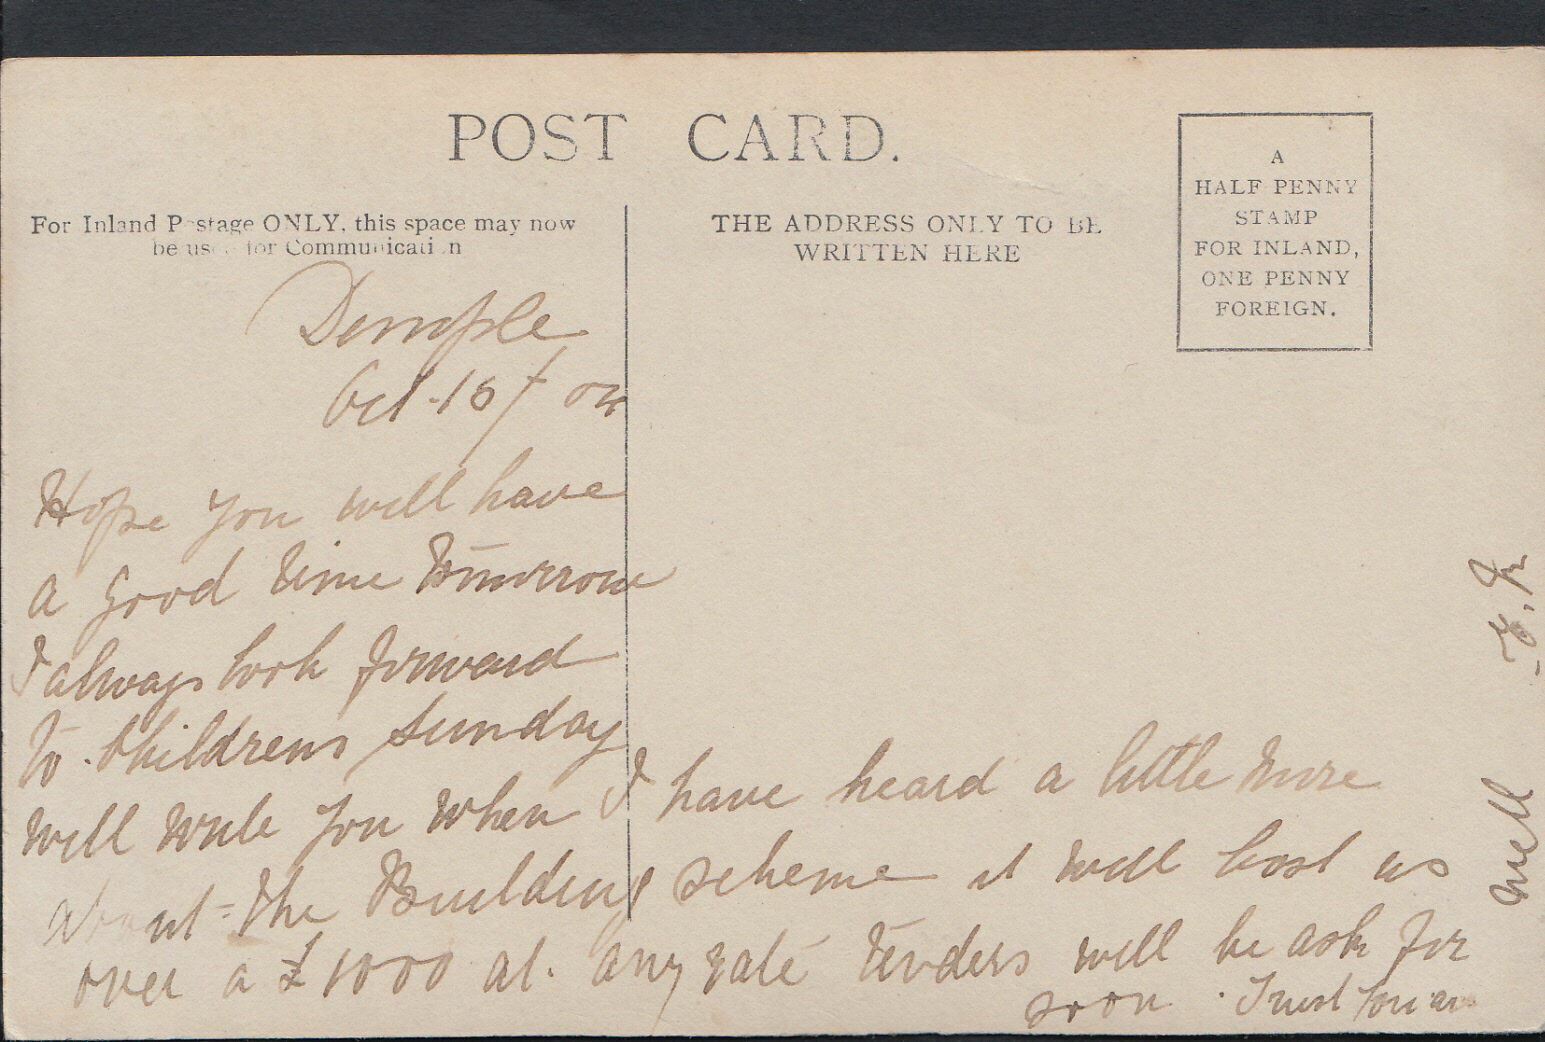 POST CARD.
For Inland Postage ONLY, this space may now
be used for Communication
THE ADDRESS ONLY TO BE
WRITTEN HERE
A
HALF PENNY
STAMP
FOR INLAND,
ONE PENNY
FOREIGN.
Dimple
Oct 15/04
Hope you will have
a good time tomorrow
I always look forward
to Childrens Sunday
will write you when I have heard a little more
about the Building scheme it will cost us
over a £1000 at any rate tenders will be ask for
soon. Trust you are
well